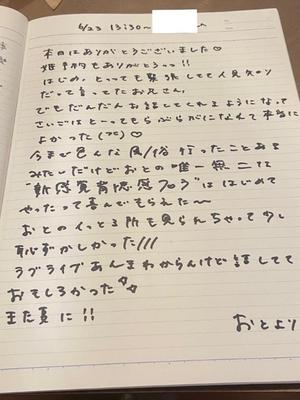 6/23 13:30〜
本日はありがとうございました♡
予約もありがとうっ!!
はじめ、とっても緊張してて人見知り
だって言ってたお兄さん。
でもだんだんお話してくれるようになって
さいごはとってもらぶらぶになれて本当に
よかった♡
今まで色んな風/俗行ったことある
みたいだけどおとの唯一無二な
"新感覚背徳感フロク"ははじめて
やったって喜んでもらえた〜
おとのイっとる所も見られちゃって少し
恥ずかしかった///
ラブライブあんまわからんけど話してて
おもしろかった
また夏に!!
おとより